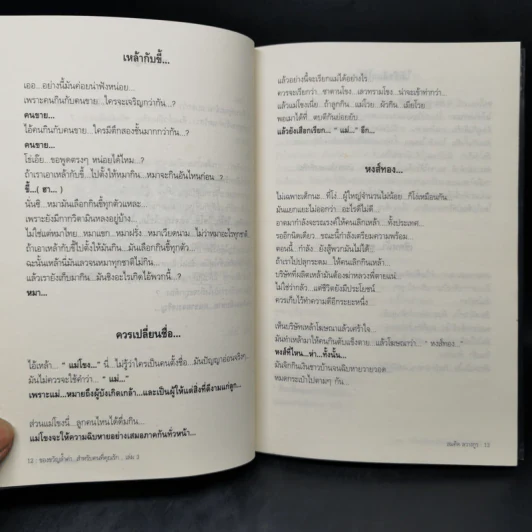 เหล้ากับขี้...
เออ...อย่างนี้มันค่อยน่าฟังหน่อย...
เพราะคนกินกับคนขาย...ใครจะเจริญกว่ากัน...?
คนขาย...
ไอ้คนกินกับคนขาย...ใครมีตึกสองชั้นมากกว่ากัน...?
คนขาย...
โธ่เอ๊ย...ขอพูดตรงๆ หน่อยได้ไหม...?
ถ้าเราเอาเหล้ากับขี้...ไปตั้งให้หมากิน...หมาจะกินอันไหนก่อน...?
ขี้...( ฮา... )
นั่นซิ...หมามันเลือกกินขี้ทุกตัวแหละ...
เพราะยังมีกากวิตามินหลงอยู่บ้าง...
ไม่ใช่แต่หมาไทย...หมาแขก...หมาฝรั่ง...หมาเวียดนาม...ไม่ว่าหมาอะไรทุกชาติ
ถ้าเอาเหล้ากับขี้ไปตั้งให้มันกิน...มันเลือกกินขี้ทุกตัว...
ฉะนั้นเหล้านี่มันเลวจนหมาทุกชาติไม่กิน...
แล้วเรายังเก็บมากิน...มันซิ่งอะไรเกิดไอ้พวกนี้...?
หมา...
ควรเปลี่ยนชื่อ...
ไอ้เหล้า... " แม่โขง..." นี่...ไม่รู้ว่าใครเป็นคนตั้งชื่อ...มันปัญญาอ่อนจริงๆ
มันไม่ควรจะใช้คำว่า... " แม่..."
เพราะแม่...หมายถึงผู้บังเกิดเกล้า...และเป็นผู้ให้แต่สิ่งที่ดีงามแก่ลูก...
ส่วนแม่โขงนี่...ลูกคนไหนได้ดื่มกิน...
แม่โขงจะให้ความฉิบหายอย่างเสมอภาคกันทั่วหน้า...
12 : ของขวัญล้ำค่า...สำหรับคนที่คุณรัก...เล่ม 3
แล้วอย่างนี้จะเรียกแม่ได้อย่างไร
ควรจะเรียกว่า...ซาตานโขง...เลวทรามโขง...น่าจะเข้าท่ากว่า...
แล้วแม่โขงเนี่ย...ถ้าลูกกิน...แม่โวย...ผัวกิน...เมียโวย
พอเมาได้ที่...ตบตีกันย่อยยับ...
แล้วยังเสือกเรียก... " แม่..." อีก...
หงส์ทอง...
ไม่เฉพาะเด็กนะ...ที่โง่...ผู้ใหญ่จำนวนไม่น้อย...ก็โง่เหมือนกัน...
มันแยกแยะไม่ออกว่า...อะไรดีไม่ดี...
อาตมากำลังจะรณรงค์ให้คนเลิกกินเหล้า...ทั้งประเทศ...
รออีกนิดเดียว...ขณะนี้กำลังเตรียมความพร้อม...
ตอนนี้...กำลัง...ยังสู้พวกมันไม่ได้...
ถ้าเราไปปลุกระดม...ให้คนเลิกกินเหล้า...
บริษัทที่ผลิตเหล้ามันต้องฆ่าหลวงพี่ตายแน่...
ไม่ใช่ว่ากลัว...แต่ชีวิตยังมีประโยชน์...
ควรเก็บไว้ทำความดีอีกระยะหนึ่ง...
เห็นบริษัทเหล้าโฆษณาแล้วเศร้าใจ...
มันทำเหล้ามาให้คนกินตับแข็งตาย...แล้วโฆษณาว่า... " หงส์ทอง...
หงส์ที่ไหน...ห่า...ทั้งนั้น...
มันจิกกินเงินชาวบ้านจนฉิบหายวายวอด...
หมดกระเป๋าไปตามๆ กัน...
13